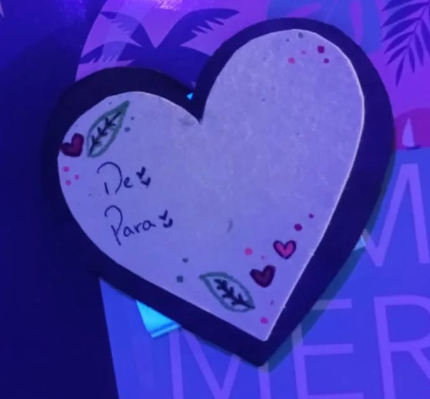 De
Para
M
MER